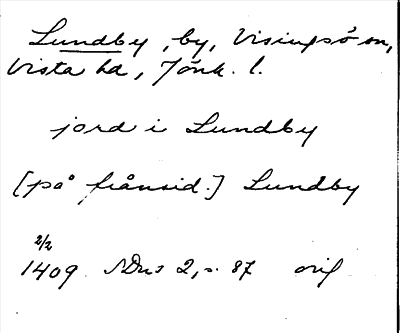 Lundby, by, Visingsö sn,
Vista hd, Jönk. l.
jord i Lundby
[på frånsid.] Lundby
2/2
1409 SDns 2, s. 87 orig